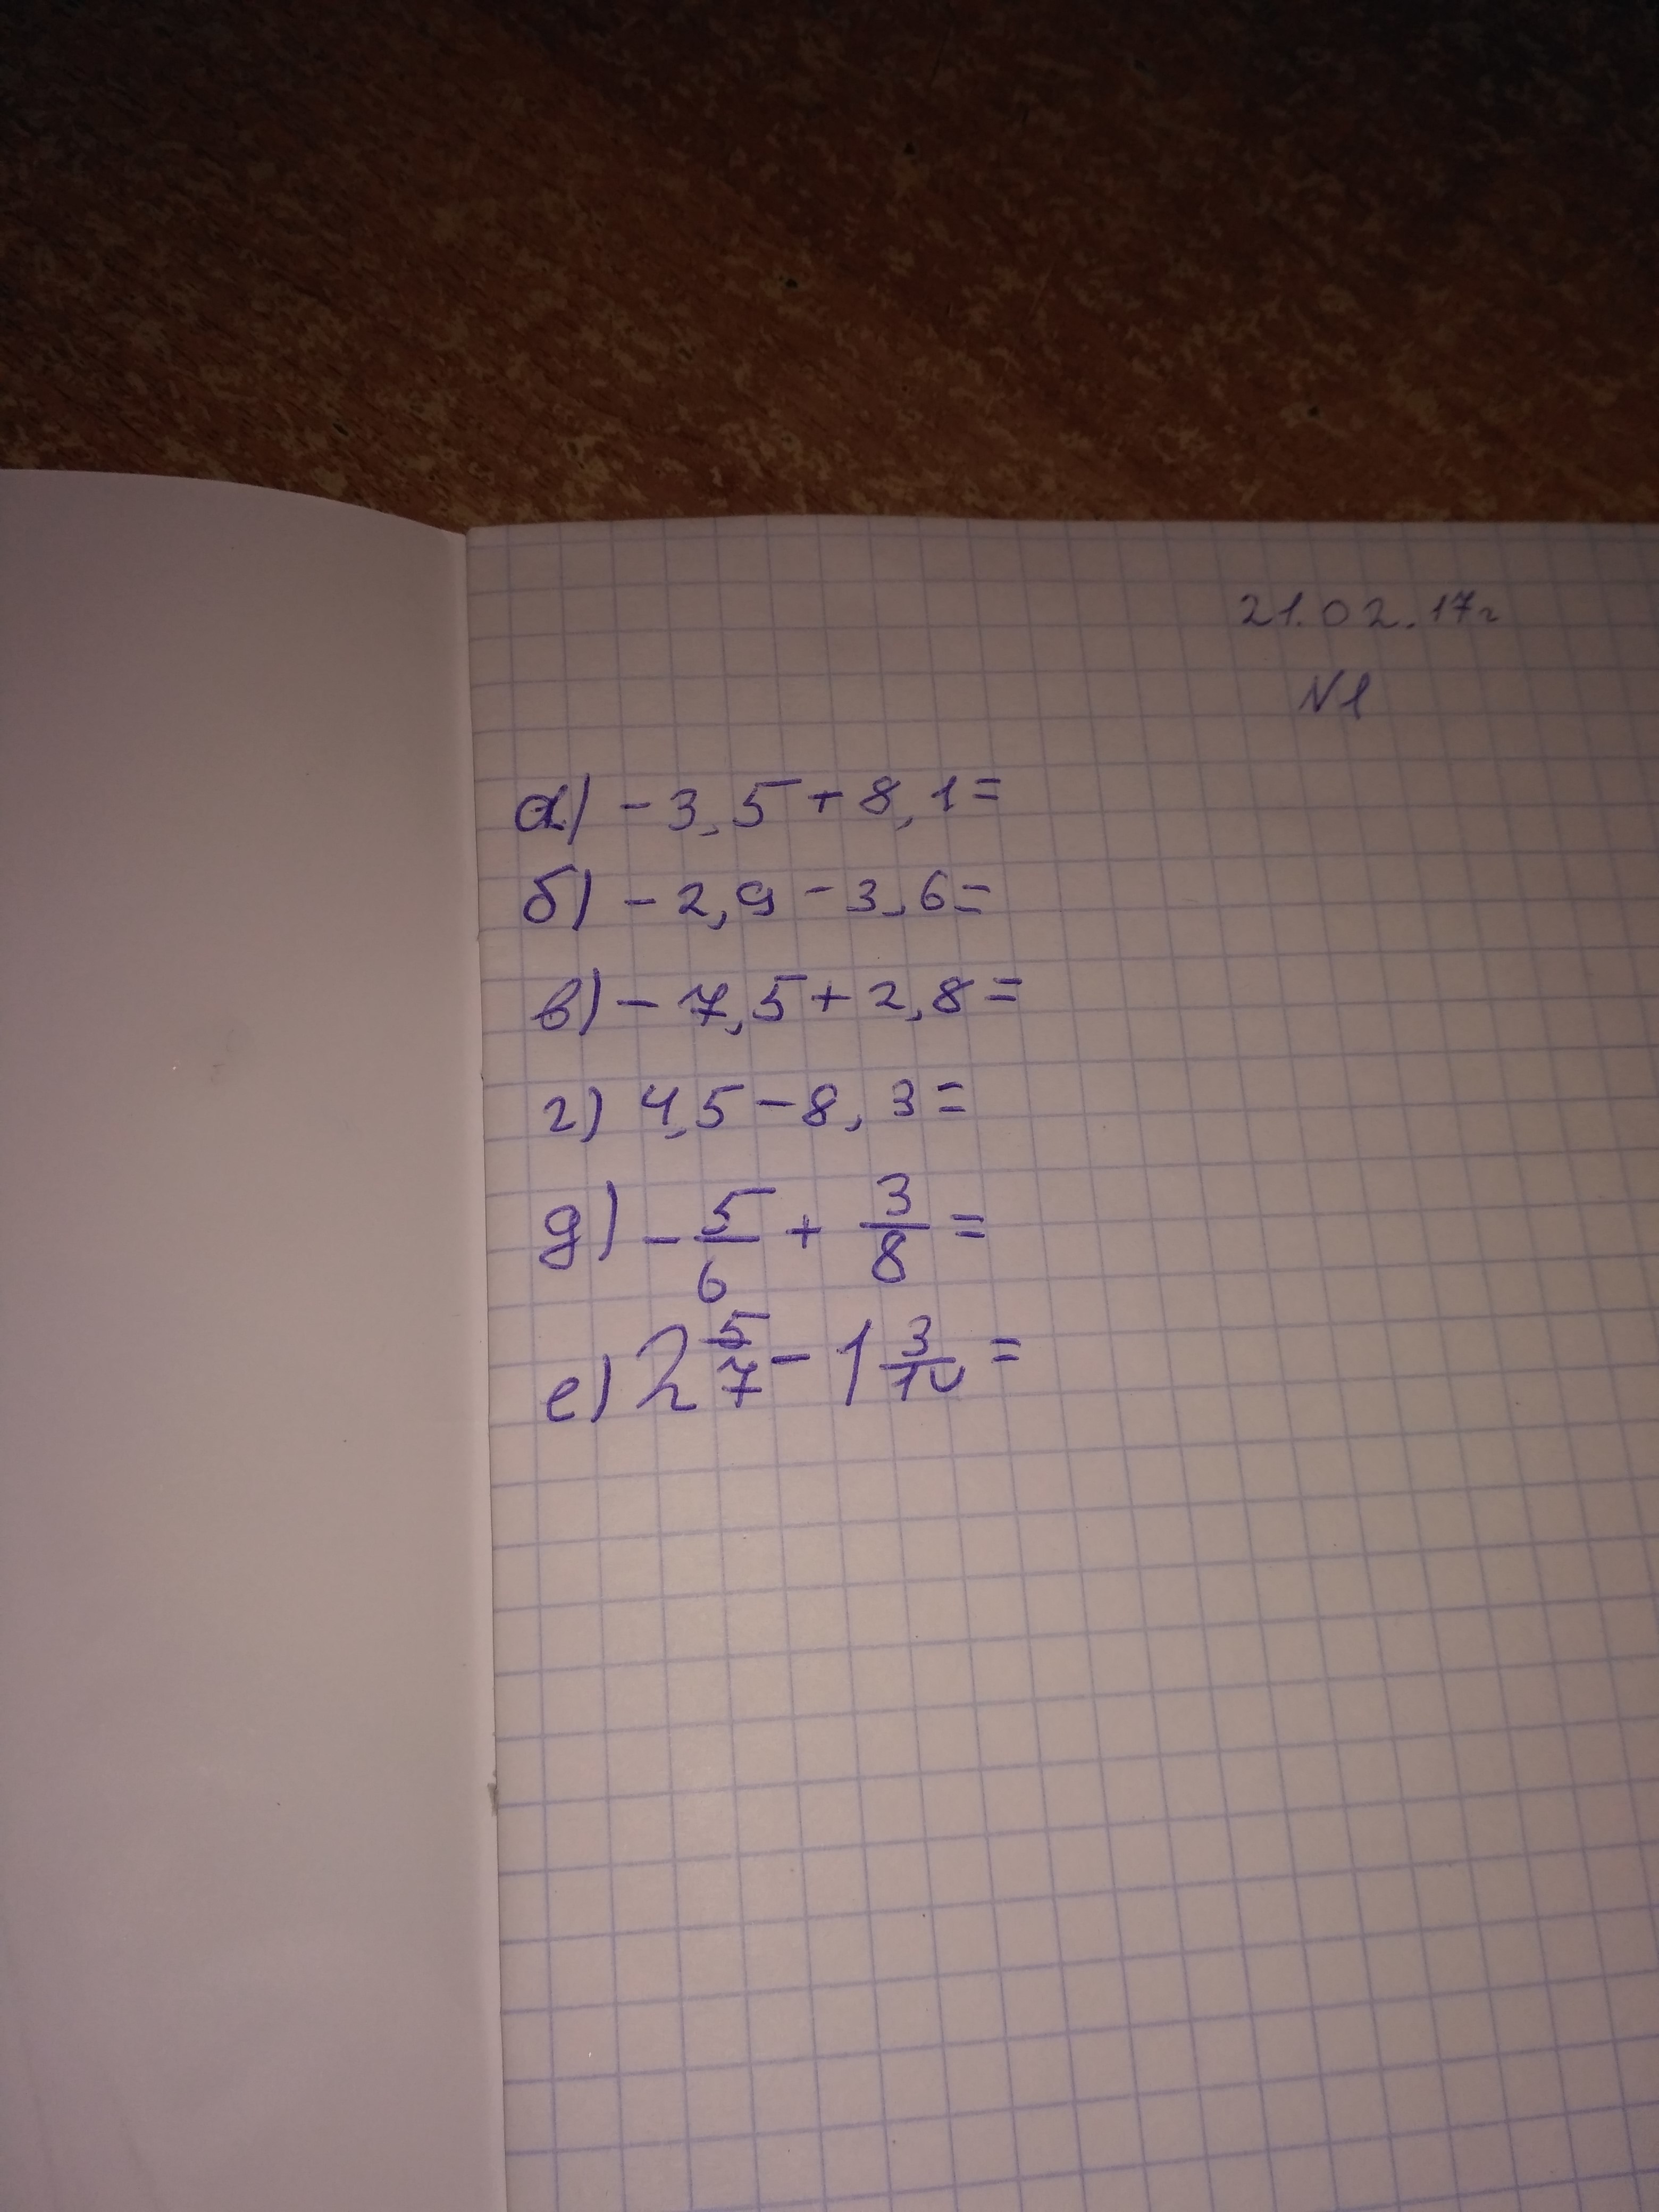 21.02.17г
N1
а) -3,5+8,1=
б) -2,9-3,6=
в) -7,5+2,8=
г) 4,5-8,3=
д) -5/6 + 3/8 =
е) 2 5/7 - 1 3/10 =